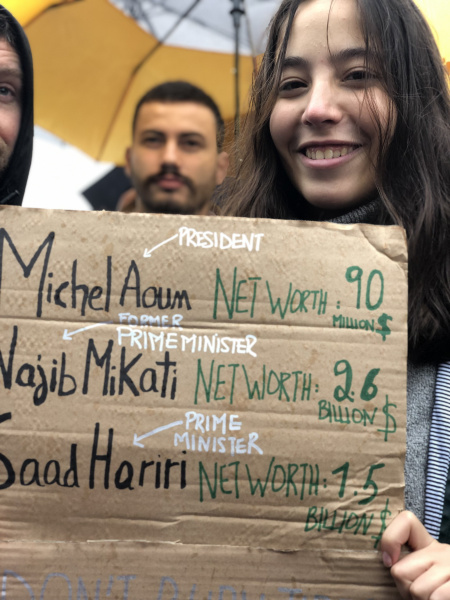 PRESIDENT
Michel Aoun NET WORTH: 90
MILLION $
FORMER
PRIME MINISTER
Najib Mikati NET WORTH: 2.6
BILLION $
PRIME
MINISTER
Saad Hariri NET WORTH: 1.5
BILLION $
DON'T